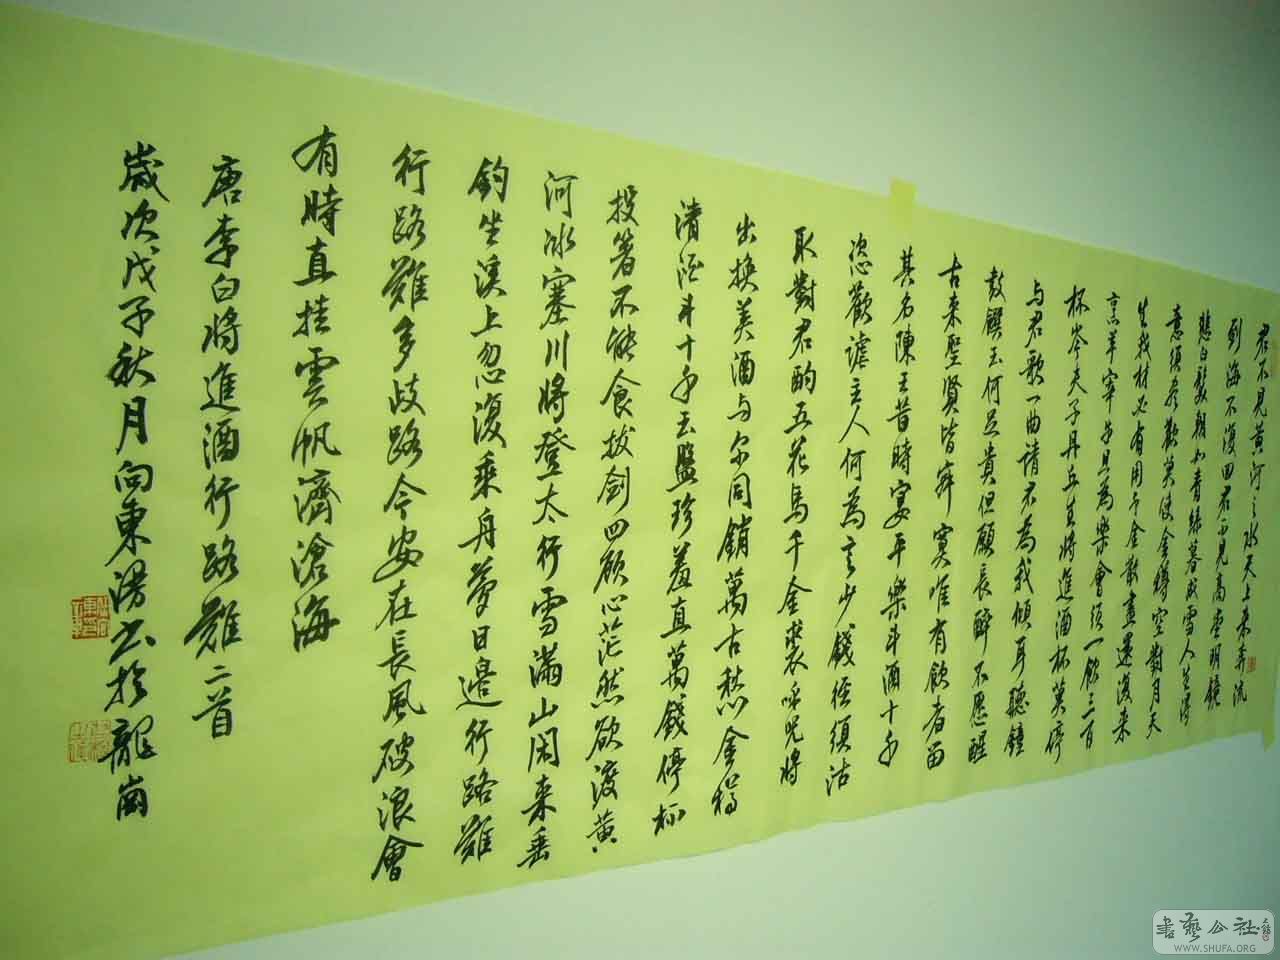 君不見黃河之水天上來奔流
到海不復回君不見高堂明鏡
悲白髮朝如青絲暮成雪人生得
意須盡歡莫使金樽空對月天
生我材必有用千金散盡還復來
烹羊宰牛且為樂會須一飲三百
杯岑夫子丹丘生將進酒杯莫停
與君歌一曲請君為我傾耳聽鐘
鼓饌玉何足貴但願長醉不愿醒
古來聖賢皆寂寞唯有飲者留
其名陳王昔時宴平樂斗酒十千
恣歡謔主人何為言少錢徑須沽
取對君酌五花馬千金裘呼兒將
出換美酒与尔同銷萬古愁金樽
清酒斗十千玉盤珍羞直萬錢停杯
投箸不能食拔劍四顧心茫然欲渡黃
河冰塞川將登太行雪滿山閑來垂
釣坐溪上忽復乘舟夢日邊行路難
行路難多歧路今安在長風破浪會
有時直挂雲帆濟滄海
唐李白將進酒行路難二首
歲次戊子秋月向東湯書於龍崗
書藝公社
WWW.SHUFA.ORG